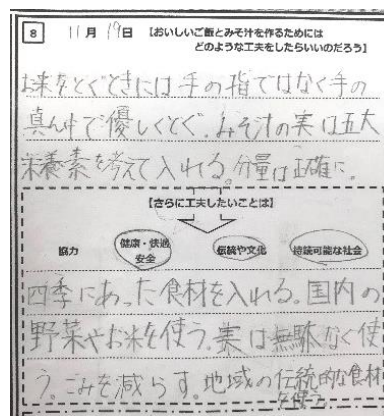 8 11月19日 【おいしいご飯とみそ汁を作るためには
どのような工夫をしたらいいのだろう】
お米をとぐときには手の指ではなく手の
真ん中で優しくとぐ。みそ汁の実は五大
栄養素を考えて入れる。分量は正確に。
【さらに工夫したいことは】
協力 健康・快適 安全 伝統や文化 持続可能な社会
四季にあった食材を入れる。国内の
野菜やお米を使う。実は無駄なく使
う。ごみを減らす。地域の伝統的な食材
を使う